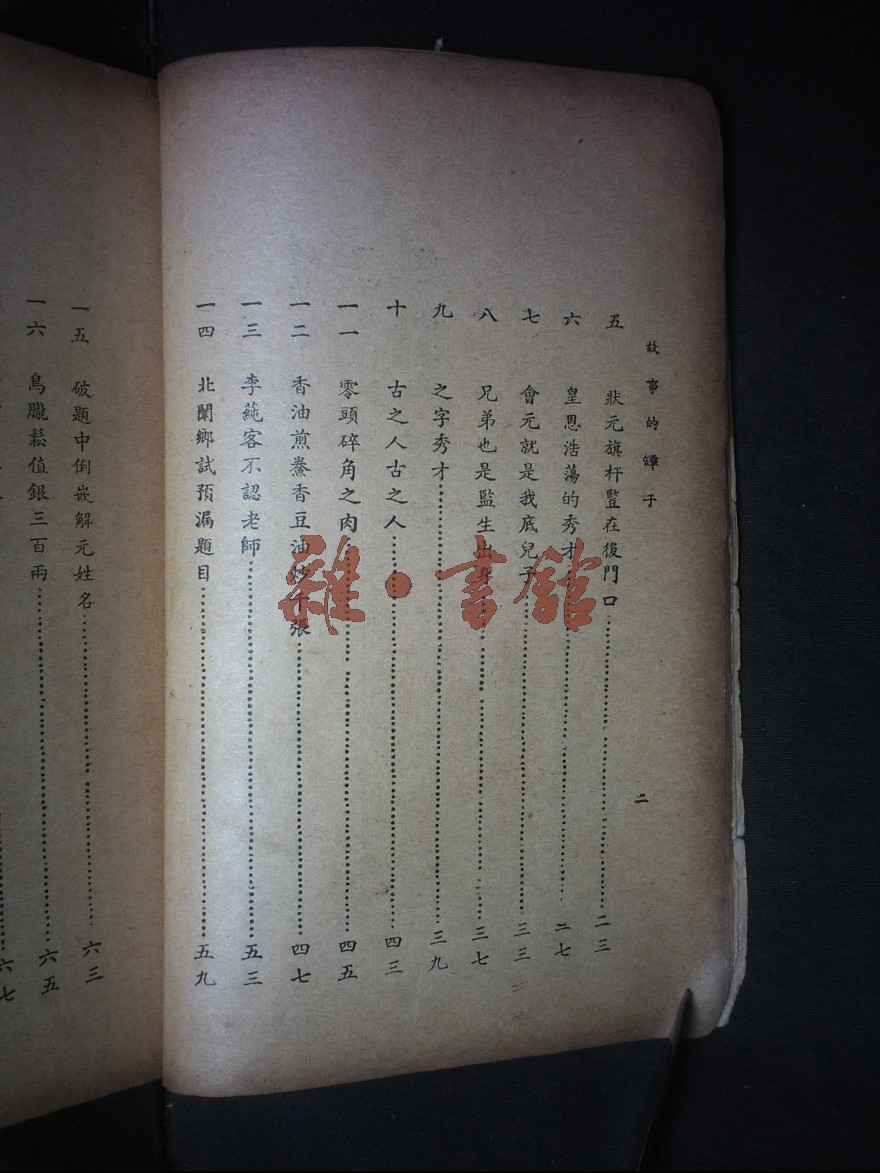 故事的罈子
五 狀元旗杆豎在後門口……二三
六 皇恩浩蕩的秀才……二七
七 會元就是我底兒子……三三
八 兄弟也是監生出身……三七
九 之字秀才……三九
十 古之人古之人……四三
一一 零頭碎角之肉……四五
一二 香油煎鰲香豆油炒千張……四七
一三 李蒓客不認老師……五三
一四 北闈鄉試預漏題目……五九
二
一五 破題中倒嵌解元姓名……六三
一六 鳥朧鬆值銀三百兩……六五
六七
雜·書館